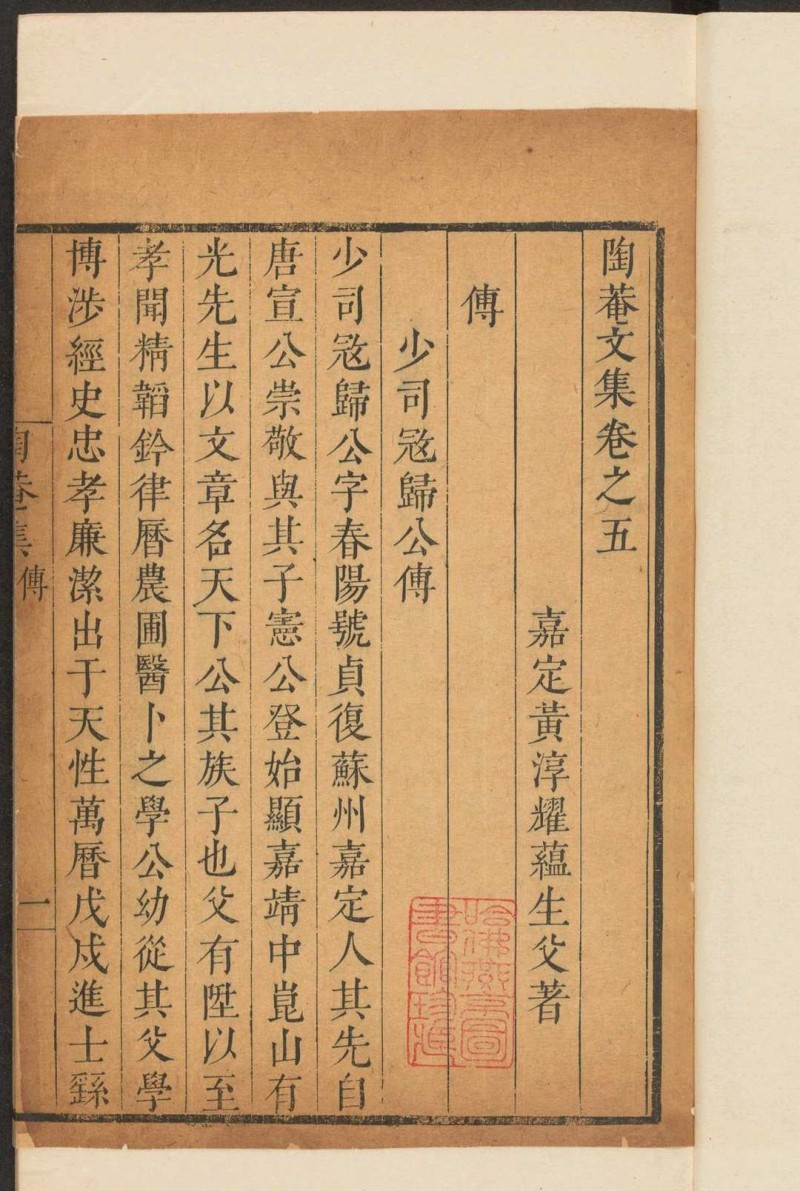 陶菴文集卷之五
嘉定黃淳耀蘊生父著
傳
少司寇歸公傳
少司寇歸公字春陽號貞復蘇州嘉定人其先自
唐宣公崇敬與其子憲公登始顯嘉靖中崑山有
光先生以文章名天下公其族子也父有陞以至
孝聞精韜鈐律曆農圃醫卜之學公幼從其父學
博涉經史忠孝廉潔出于天性萬曆戊戌進士繇
陶菴集 傳 一
哈佛燕京圖
書館珍藏